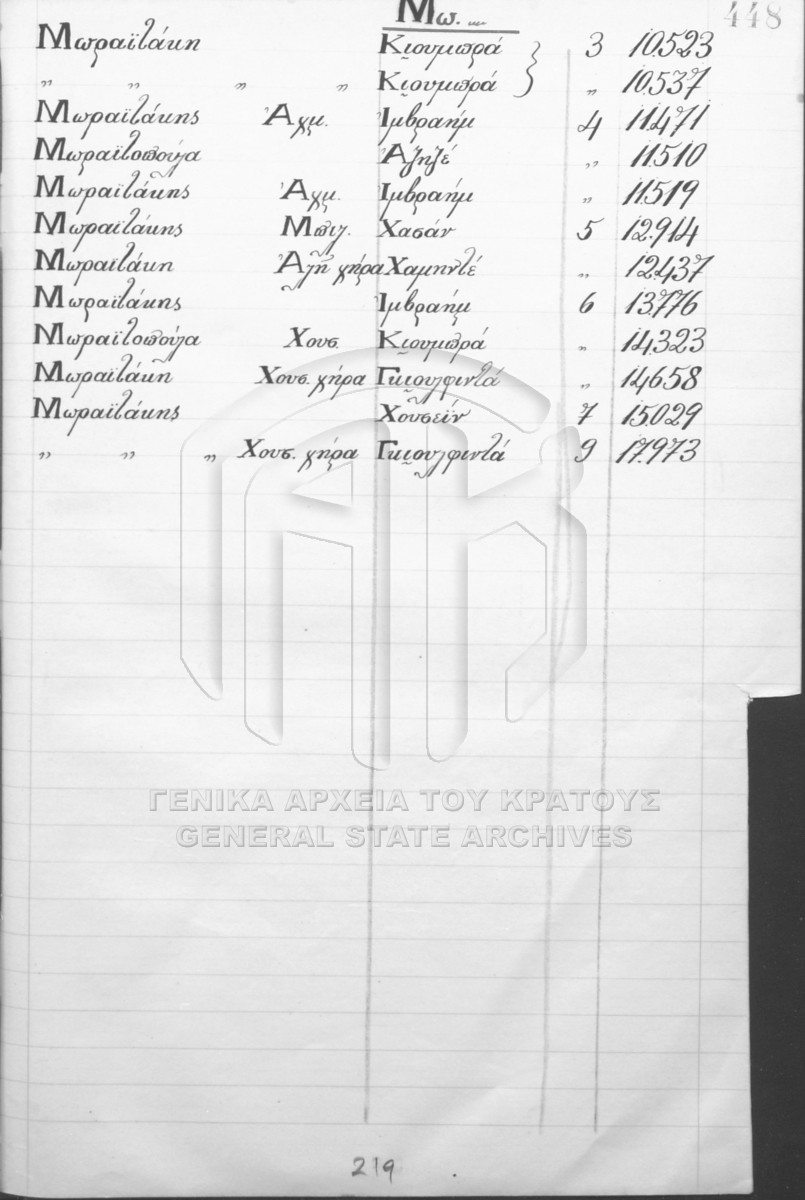 Μω. ...
448
Μωραϊτάκη Κιουμπρά 3 10.523
„ „ „ „ Κιουμπρά „ 10.537
Μωραϊτάκης Ἀχμ. Ἰμβραήμ 4 11.471
Μωραϊτοπούλα Ἀζηζέ „ 11.510
Μωραϊτάκης Ἀχμ. Ἰμβραήμ „ 11.519
Μωραϊτάκης Μπιλ. Χασάν 5 12.914
Μωραϊτάκη Ἀλῆ χήρα Χαμηντέ „ 12.437
Μωραϊτάκης Ἰμβραήμ 6 13.776
Μωραϊτοπούλα Χουσ. Κιουμπρά „ 14.323
Μωραϊτάκη Χουσ. χήρα Γκιουλφιντά „ 14.658
Μωραϊτάκης Χουσεΐν 7 15.029
„ „ „ Χουσ. χήρα Γκιουλφιντά 9 17.973
ΓΕΝΙΚΑ ΑΡΧΕΙΑ ΤΟΥ ΚΡΑΤΟΥΣ
GENERAL STATE ARCHIVES
219